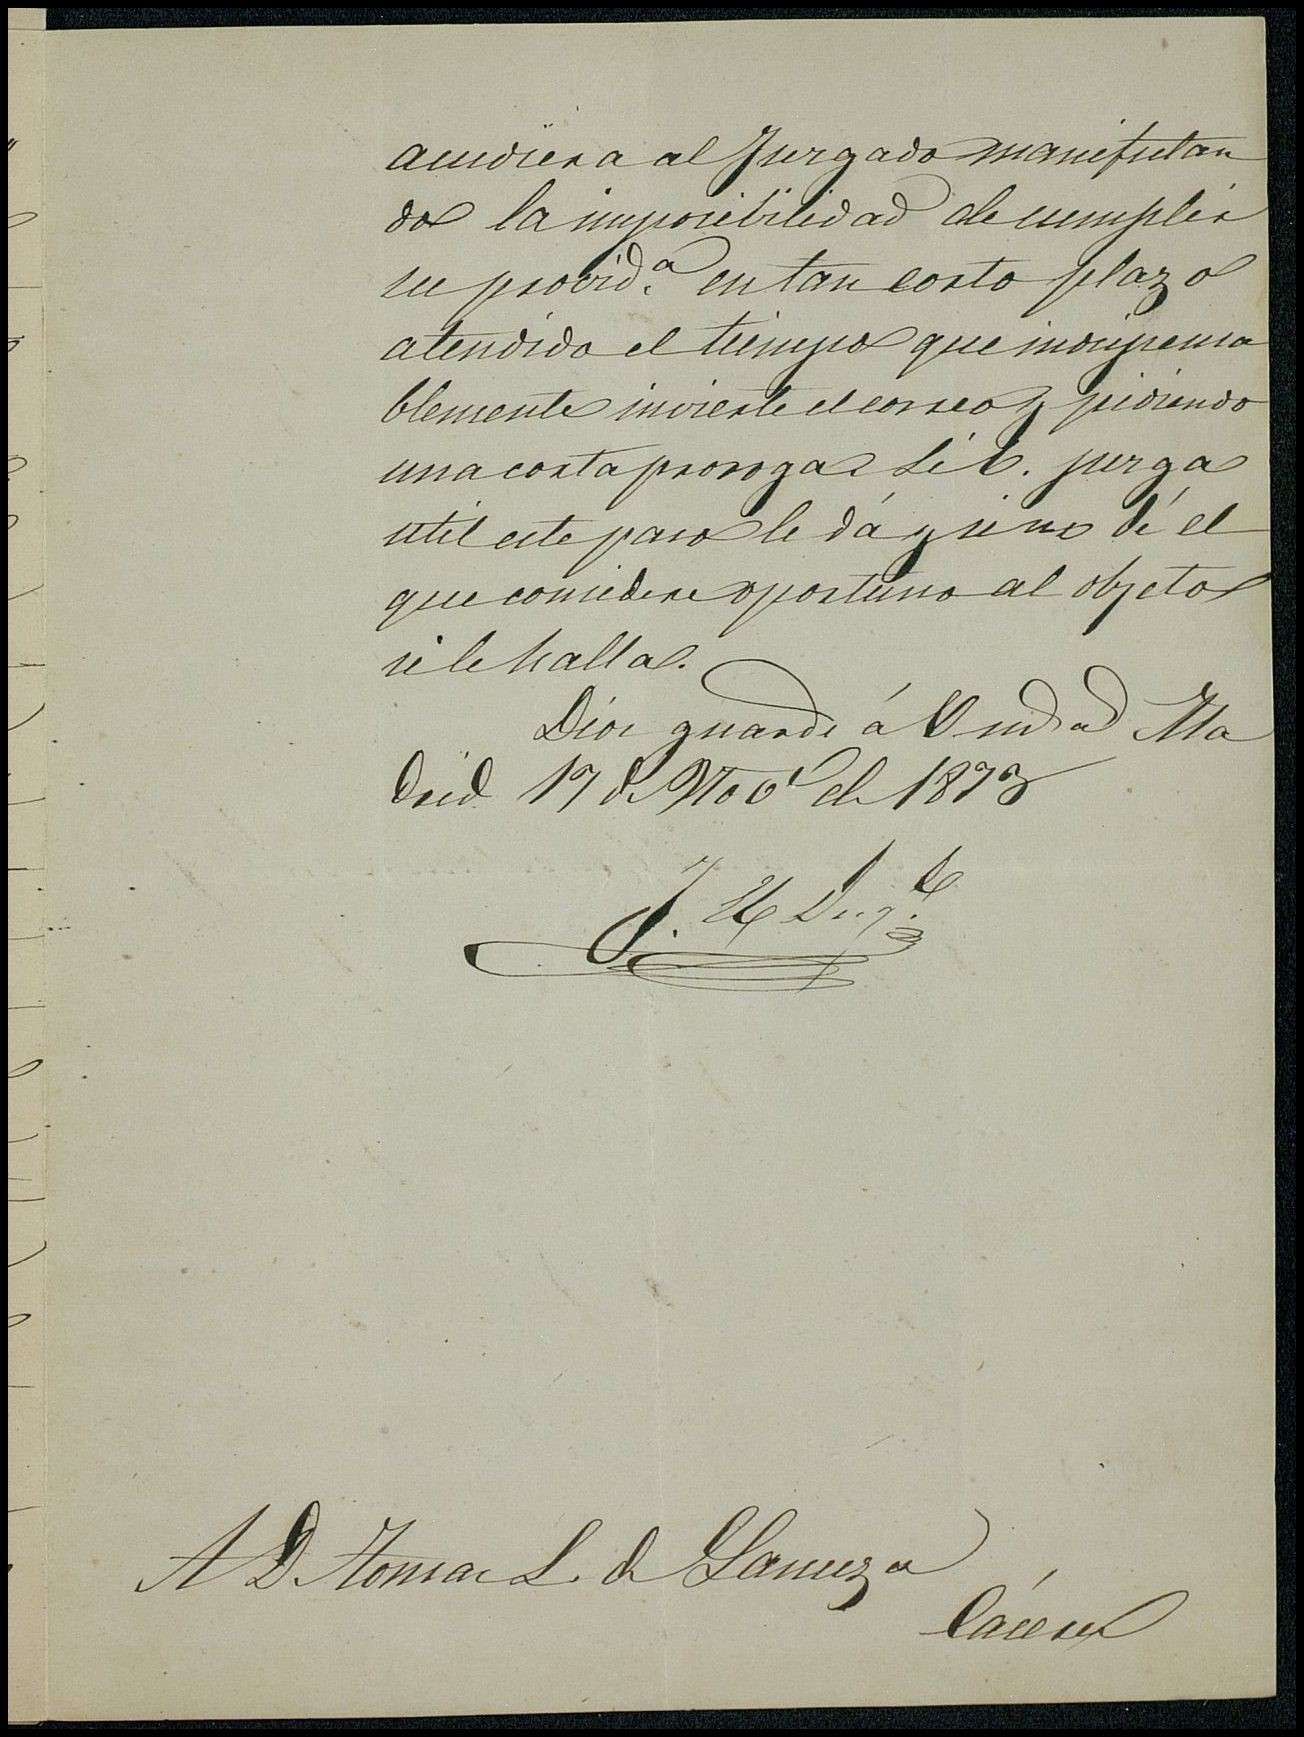 acudiera al Juzgado manifestan
do la imposibilidad de cumplir
su provid.ª en tan corto plazo
atendido el tiempo que indispensa
blemente invierte el correo y pidiendo
una corta proroga. Si V. juzga
util este paso le dá y sino dé el
que considere oportuno al objeto
si le halla.
Dios guarde á V. Ma
drid 17 de Nov.e de 1873
J. H
A D. Tomas L. de Lanuza
Cáceres